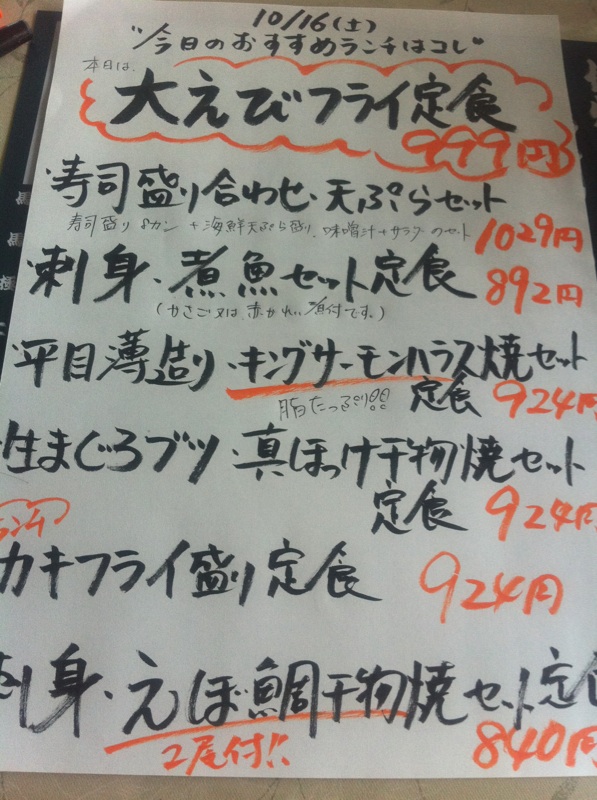 10/16(土)
"今日のおすすめランチはコレ"
本日は、
大えびフライ定食
999円
寿司盛り合わせ・天ぷらセット
寿司盛り8カン+海鮮天ぷら盛り、味噌汁+サラダのセット
1029円
刺身・煮魚セット定食 892円
(かさご又は赤かれい煮付です。)
平目薄造り・キングサーモンハラス焼セット
脂たっぷり!!! 定食 924円
生まぐろブツ・真ほっけ干物焼セット
定食 924円
カキフライ盛り定食 924円
刺身・えぼ鯛干物焼セット定食
2尾付!! 840円